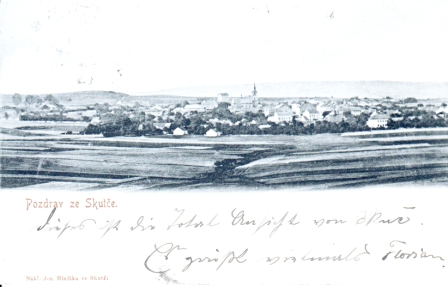 Pozdrav ze Skutče.
dieses ist die Total Ansicht von Skuč.
Es grüßt vielmals Florian.
Nákl. Jos. Hladíka ve Skutči.